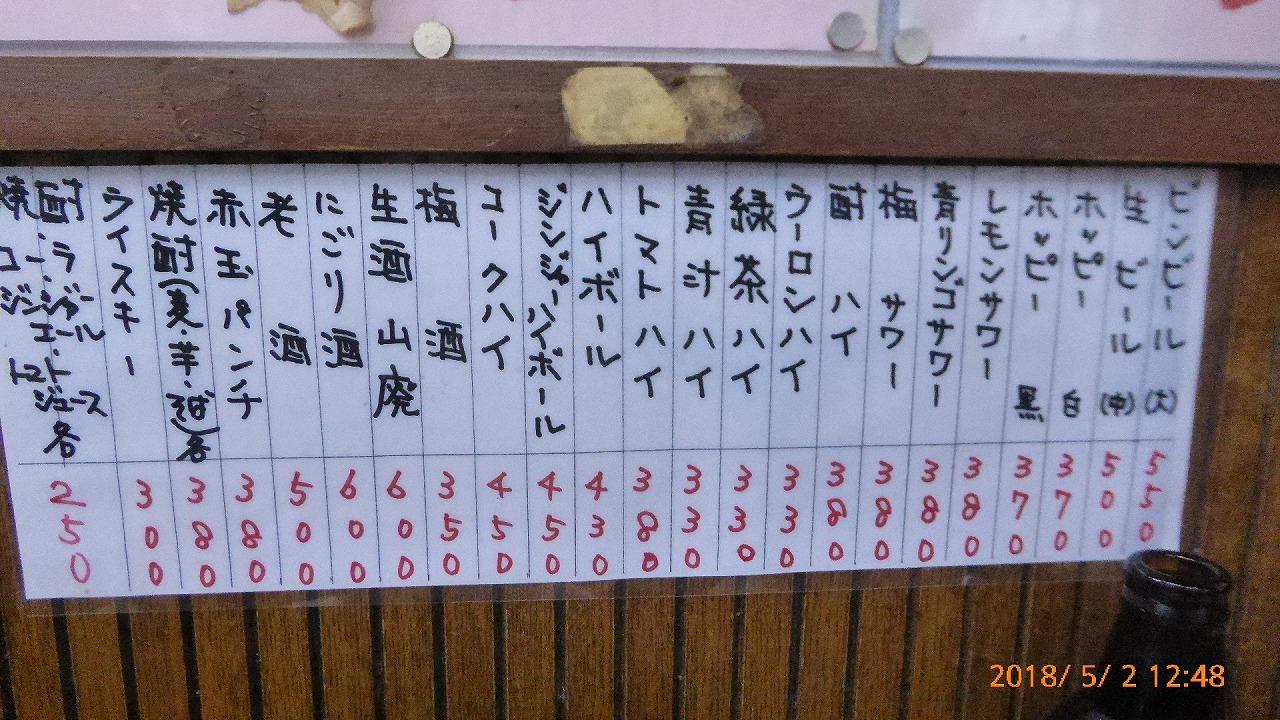 ビンビール (大) 550
生ビール (中) 500
ホッピー 白 370
ホッピー 黒 370
レモンサワー 380
青リンゴサワー 380
梅サワー 380
酎ハイ 380
ウーロンハイ 330
緑茶ハイ 330
青汁ハイ 330
トマトハイ 380
ハイボール 430
ジンジャーハイボール 450
コークハイ 450
梅酒 350
生酒 山廃 600
にごり酒 600
老酒 500
赤玉パンチ 380
焼酎(麦・芋・そば)各 380
ウイスキー 300
コーラ・ジンジャーエール・トマトジュース各 250
2018/ 5/ 2 12:48